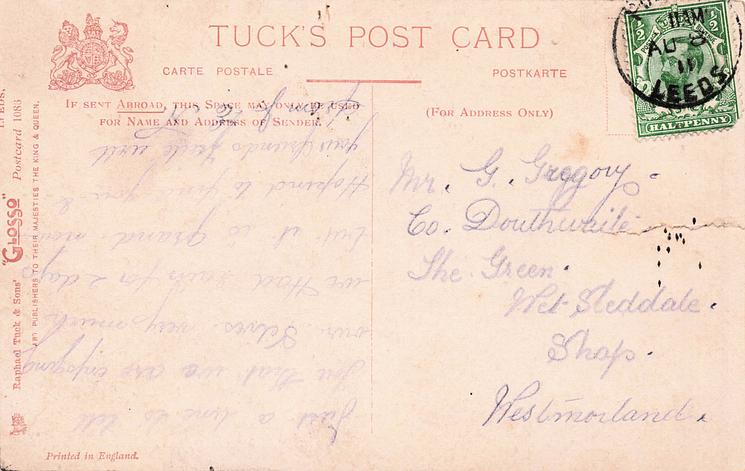 TUCK'S POST CARD
CARTE POSTALE
POSTKARTE
IF SENT ABROAD, THIS SPACE MAY ONLY BE USED
FOR NAME AND ADDRESS OF SENDER.
(FOR ADDRESS ONLY)
11 AM
AU 8
11
LEEDS
1/2
1/2
HALFPENNY
Mr. G. Gregory.
Co. Douthwaite
The Green.
Wet Sleddale.
Shap.
Westmorland.
Just a line to tell
you that we are enjoying
our Selves very much
we Had rain for 2 days
but it is grand now
Hopend to find you &
your friends quite well
Raphael Tuck & Sons' "GLOSSO" Postcard 1086
ART PUBLISHERS TO THEIR MAJESTIES THE KING & QUEEN.
LEEDS.
Printed in England.